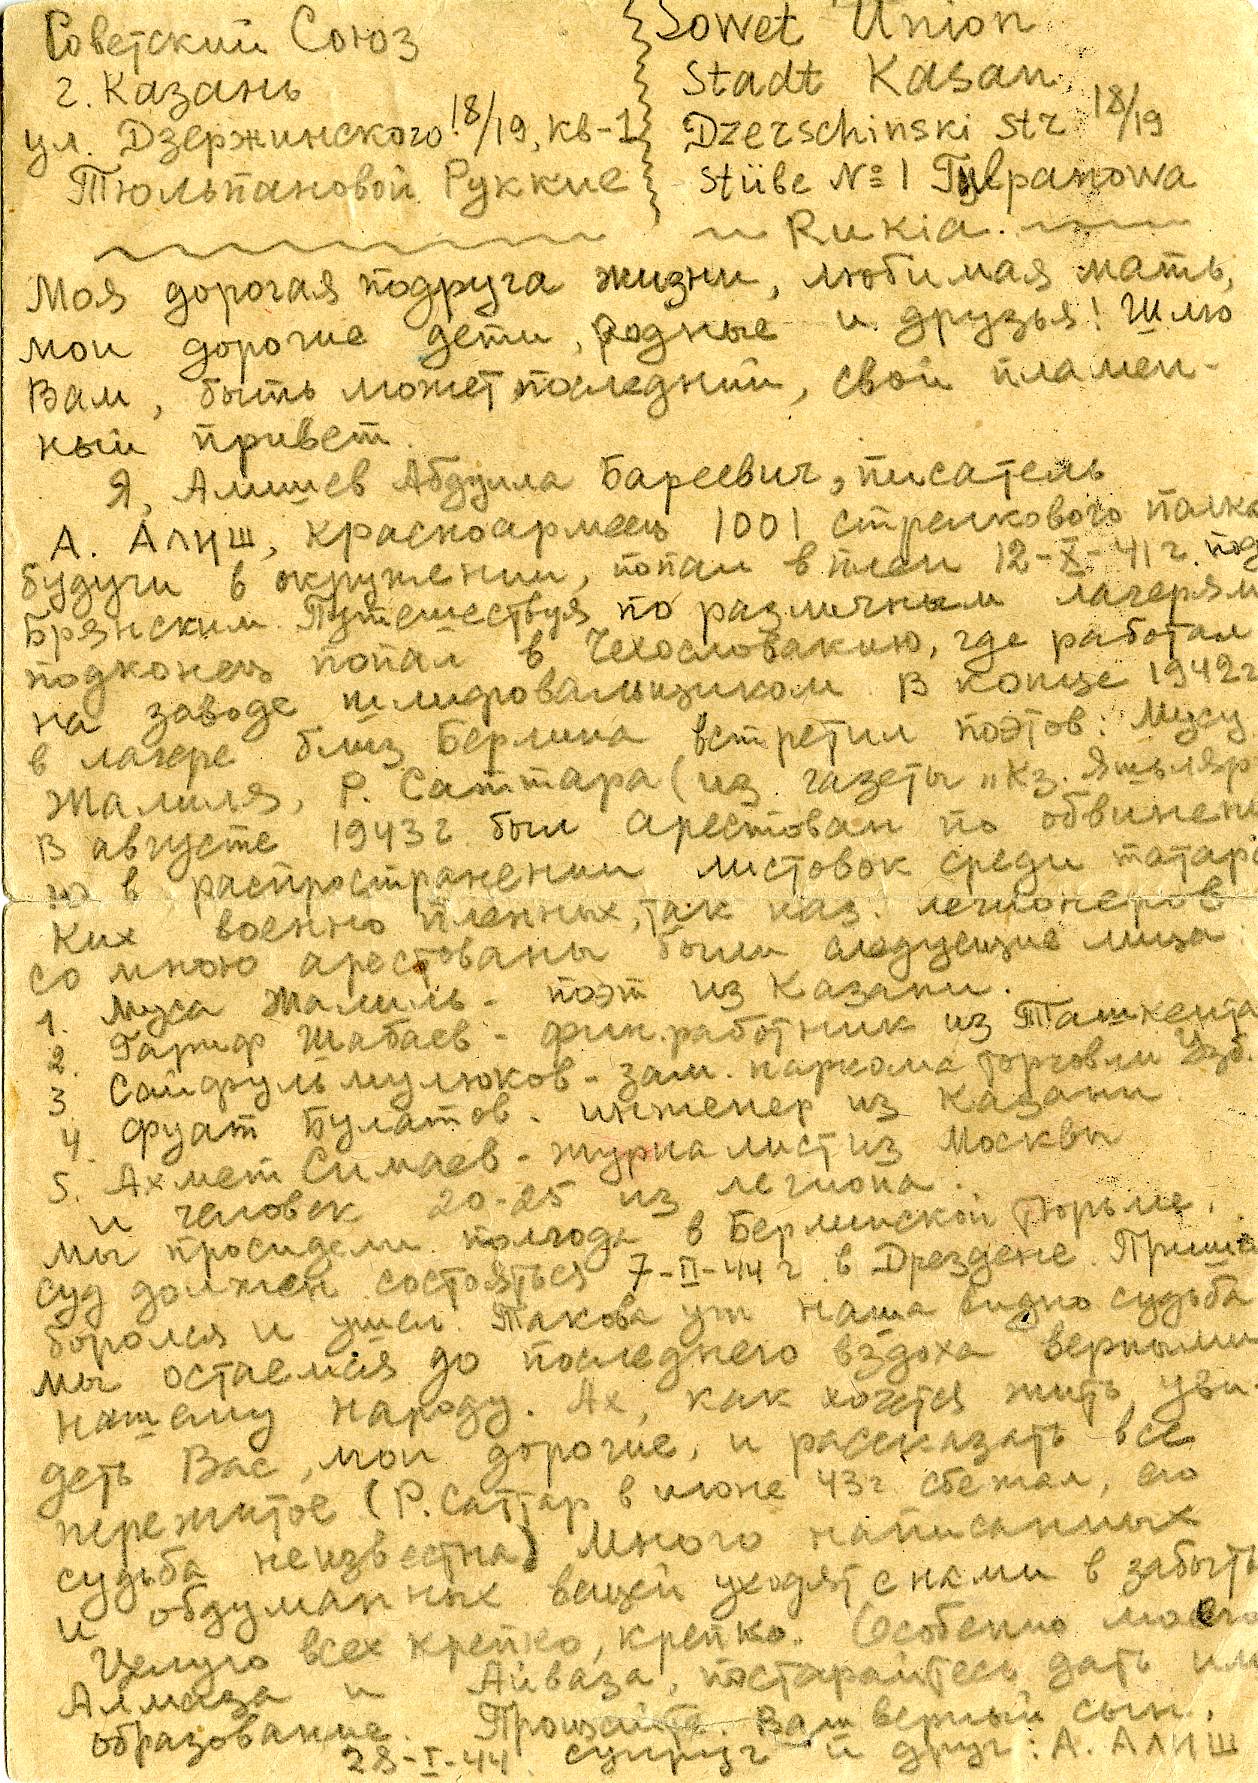 Советский Союз
г. Казань
ул. Дзержинского 18/19, кв-1
Тюльпановой Руккие
Sowet Union
Stadt Kasan
Dzerschinski Str 18/19
Stübe № 1 Tülpanowa
Rukia.
Моя дорогая подруга жизни, любимая мать,
мои дорогие дети, родные и друзья! Шлю
Вам, быть может последний, свой пламен-
ный привет.
Я, Алишев Абдулла Бареевич, писатель
А. Алиш, красноармеец 1001 стрелкового полка
будучи в окружении, попал в плен 12-X-41 г. под
Брянском. Путешествуя по различным лагерям
подконец попал в Чехословакию, где работал
на заводе шлифовальщиком. В конце 1942 г
в лагере близ Берлина встретил поэтов: Мусу
Жалиля, Р. Саттара (из газеты „Кз. Яшьляр
В августе 1943 г был арестован по обвинени
ю в распространении листовок среди татарс
ких военнопленных, так наз. легионеров
со мною арестованы были следующие лица
1. Муса Жалиль - поэт из Казани.
2. Гариф Шабаев - фин.работник из Ташкента
3. Сайфульмулюков - зам. наркома торговли Узб.
4. Фуат Булатов - инженер из Казани
5. Ахмет Симаев - журналист из Москвы
и человек 20-25 из легиона.
Мы просидели полгода в Берлинской тюрьме.
Суд должен состояться 7-II-44 г в Дрездене. Пришел
боролся и ушел. Такова уж наша видно судьба
Мы остаемся до последнего вздоха верными
нашему народу. Ах, как хочется жить, уви-
деть Вас, мои дорогие, и рассказать все
пережитое (Р. Саттар в июне 43 г. сбежал, его
судьба неизвестна) Много написанных
и обдуманных вещей уходят с нами в забыть
Целую всех крепко, крепко. Особенно моего
Алмаза и Айваза, постарайтесь дать им
образование. Прощайте. Ваш верный сын,
28-I-44. супруг и друг: А. Алиш